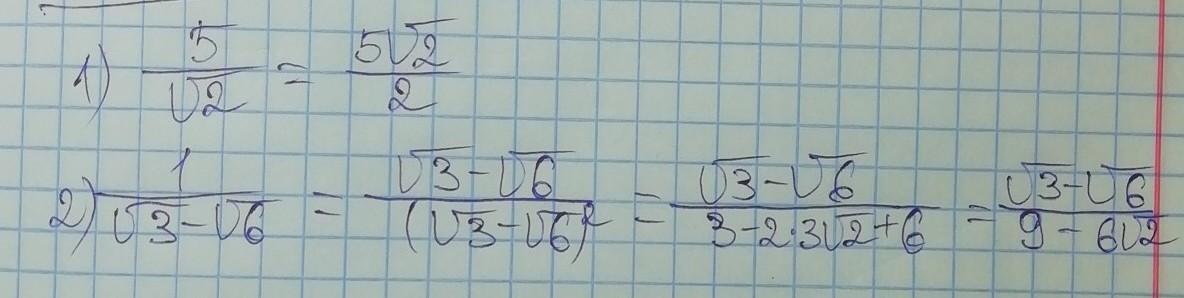 1) 5/√2 = 5√2/2
2) 1/(√3-√6) = (√3-√6)/(√3-√6)² = (√3-√6)/(3-2·3√2+6) = (√3-√6)/(9-6√2)